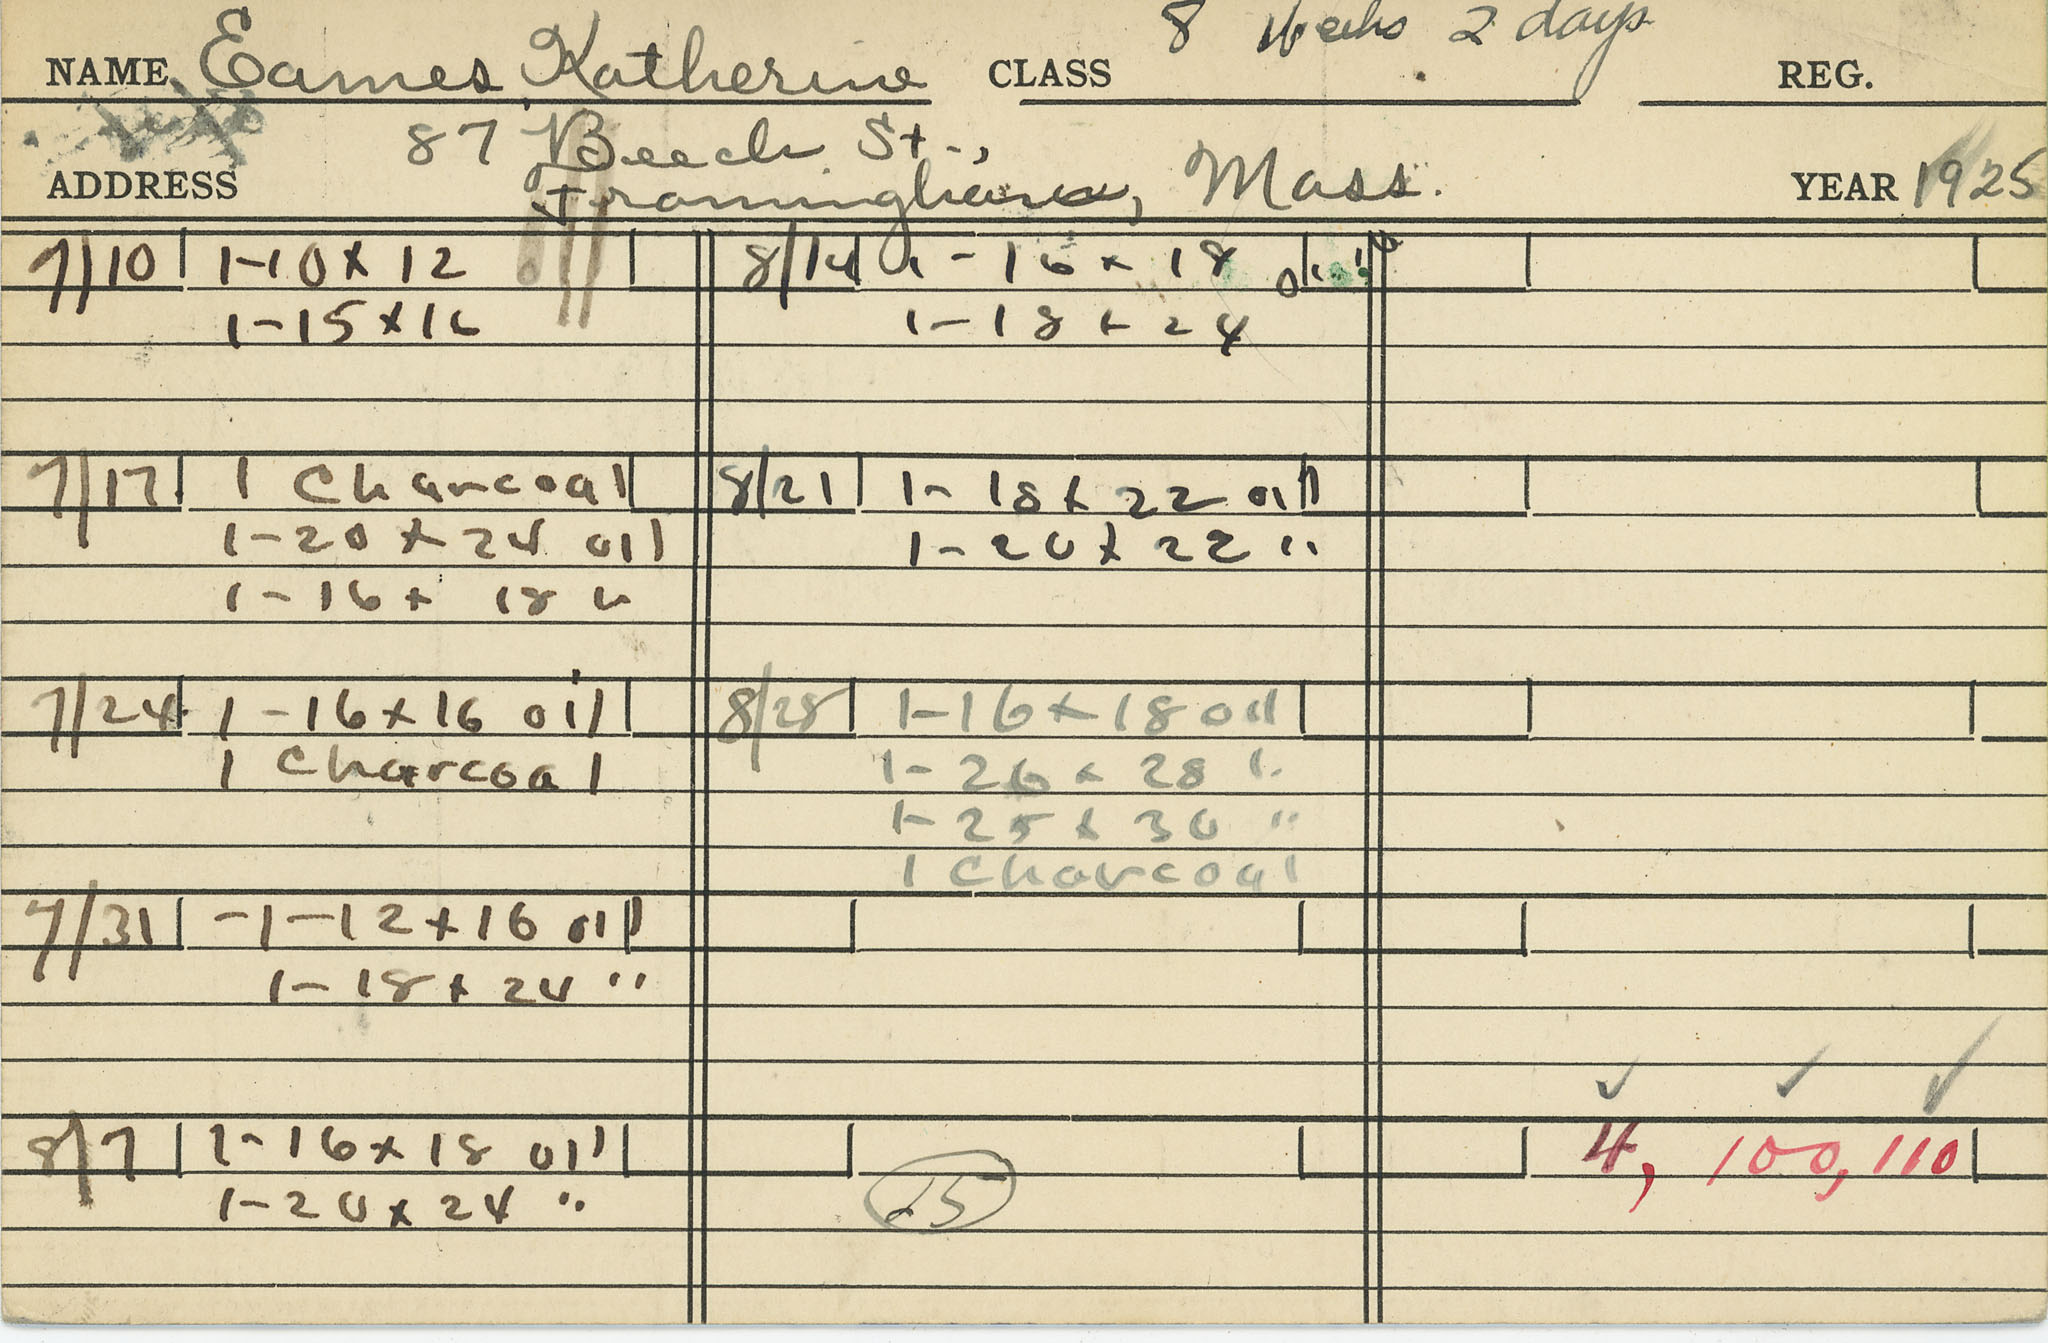 8 Weeks 2 days
NAME Eames, Katherine CLASS REG.
87 Beech St.,
ADDRESS Framingham, Mass. YEAR 1925
7/10 1-10 x 12
1-15 x 16
7/17 1 Charcoal
1-20 x 24 oil
1-16 x 18 "
7/24 1-16 x 16 oil
1 Charcoal
7/31 -1-12 x 16 oil
1-18 x 24 "
8/7 1-16 x 18 oil
1-20 x 24 "
8/14 1-16 x 18 oil
1-18 x 24
8/21 1-18 x 22 oil
1-20 x 22 "
8/28 1-16 x 18 oil
1-26 x 28 "
1-25 x 30 "
1 Charcoal
25
4, 100, 110